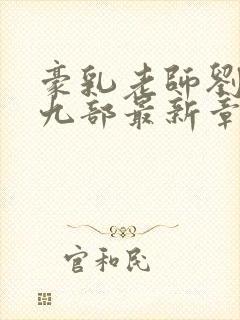 豪乳老師劉
九部最新章
官和民